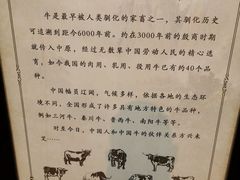 牛是最早被人类驯化的家畜之一，其驯化历史
可追溯到距今6000年前。约在3000年前的殷商时期
就传入中原，经过无数辈中国劳动人民的精心选
育，如今我国的肉用、乳用、役用牛已有约40个品
种。
中国幅员辽阔，气候多样，依据各地的生态环
境不同，全国形成了许多具有地方特色的牛品种，
例如三河牛、秦川牛、鲁西牛、南阳牛等等。
时至今日，中国人和中国牛的伙伴关系方兴未
艾……